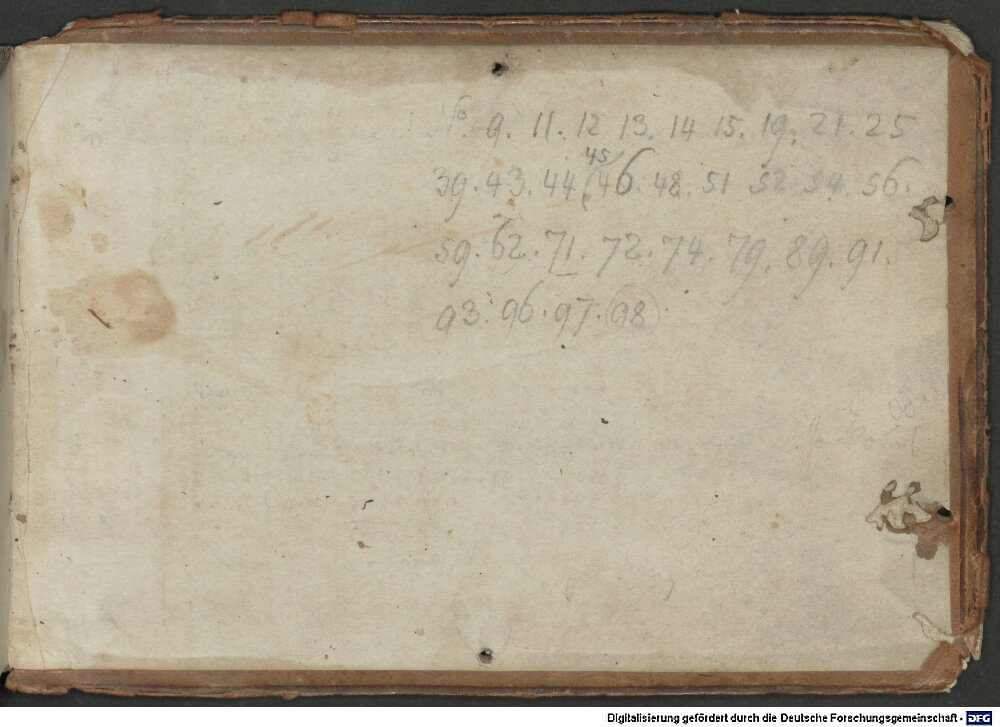 No. 9. 11. 12 13. 14 15. 19. 21. 25
45
39. 43. 44. (46. 48. 51 52 54. 56.
59. 62. 71. 72. 74. 79. 89. 91.
93. 96. 97. 98.
Digitalisierung gefördert durch die Deutsche Forschungsgemeinschaft - DFG